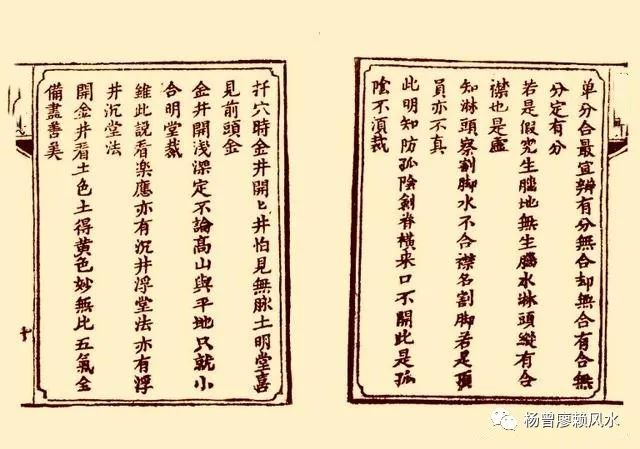 单分合最宜辨有分無合却無合有合無
分定有分
若是假究生腦地無生腦水淋頭縱有合
襟也是虛
知淋頭察割脚水不合襟名割脚若是頂
員亦不真
此明知防孤陰剣脊橫来口不開此是孤
陰不湏裁
扦穴時金井開匕井怕見無脉土明堂喜
見前頭金
金井開浅深定不論高山與平地只就小
合明堂裁
維此說看楽應亦有沉井浮堂法亦有浮
井沉堂法
開金井看土色土得黄色妙無比五氣全
備盡善矣
十
杨曾廖赖风水